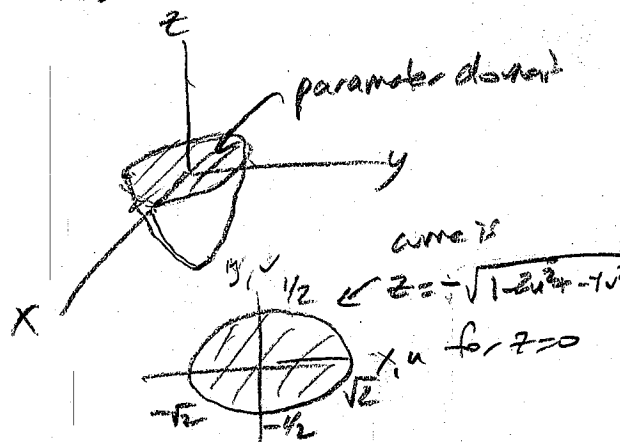 z
parameter domain
y
x
curve is
y, v
1/2
z = -√1-2u²+-4v²
x, u for z=0
-√2
√2
-1/2